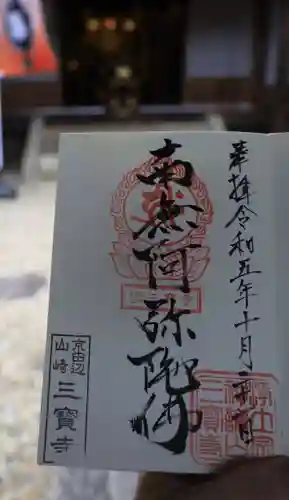 奉拝 令和五年十月二十一日
南無阿弥陀佛
京田辺
山崎
三寶寺